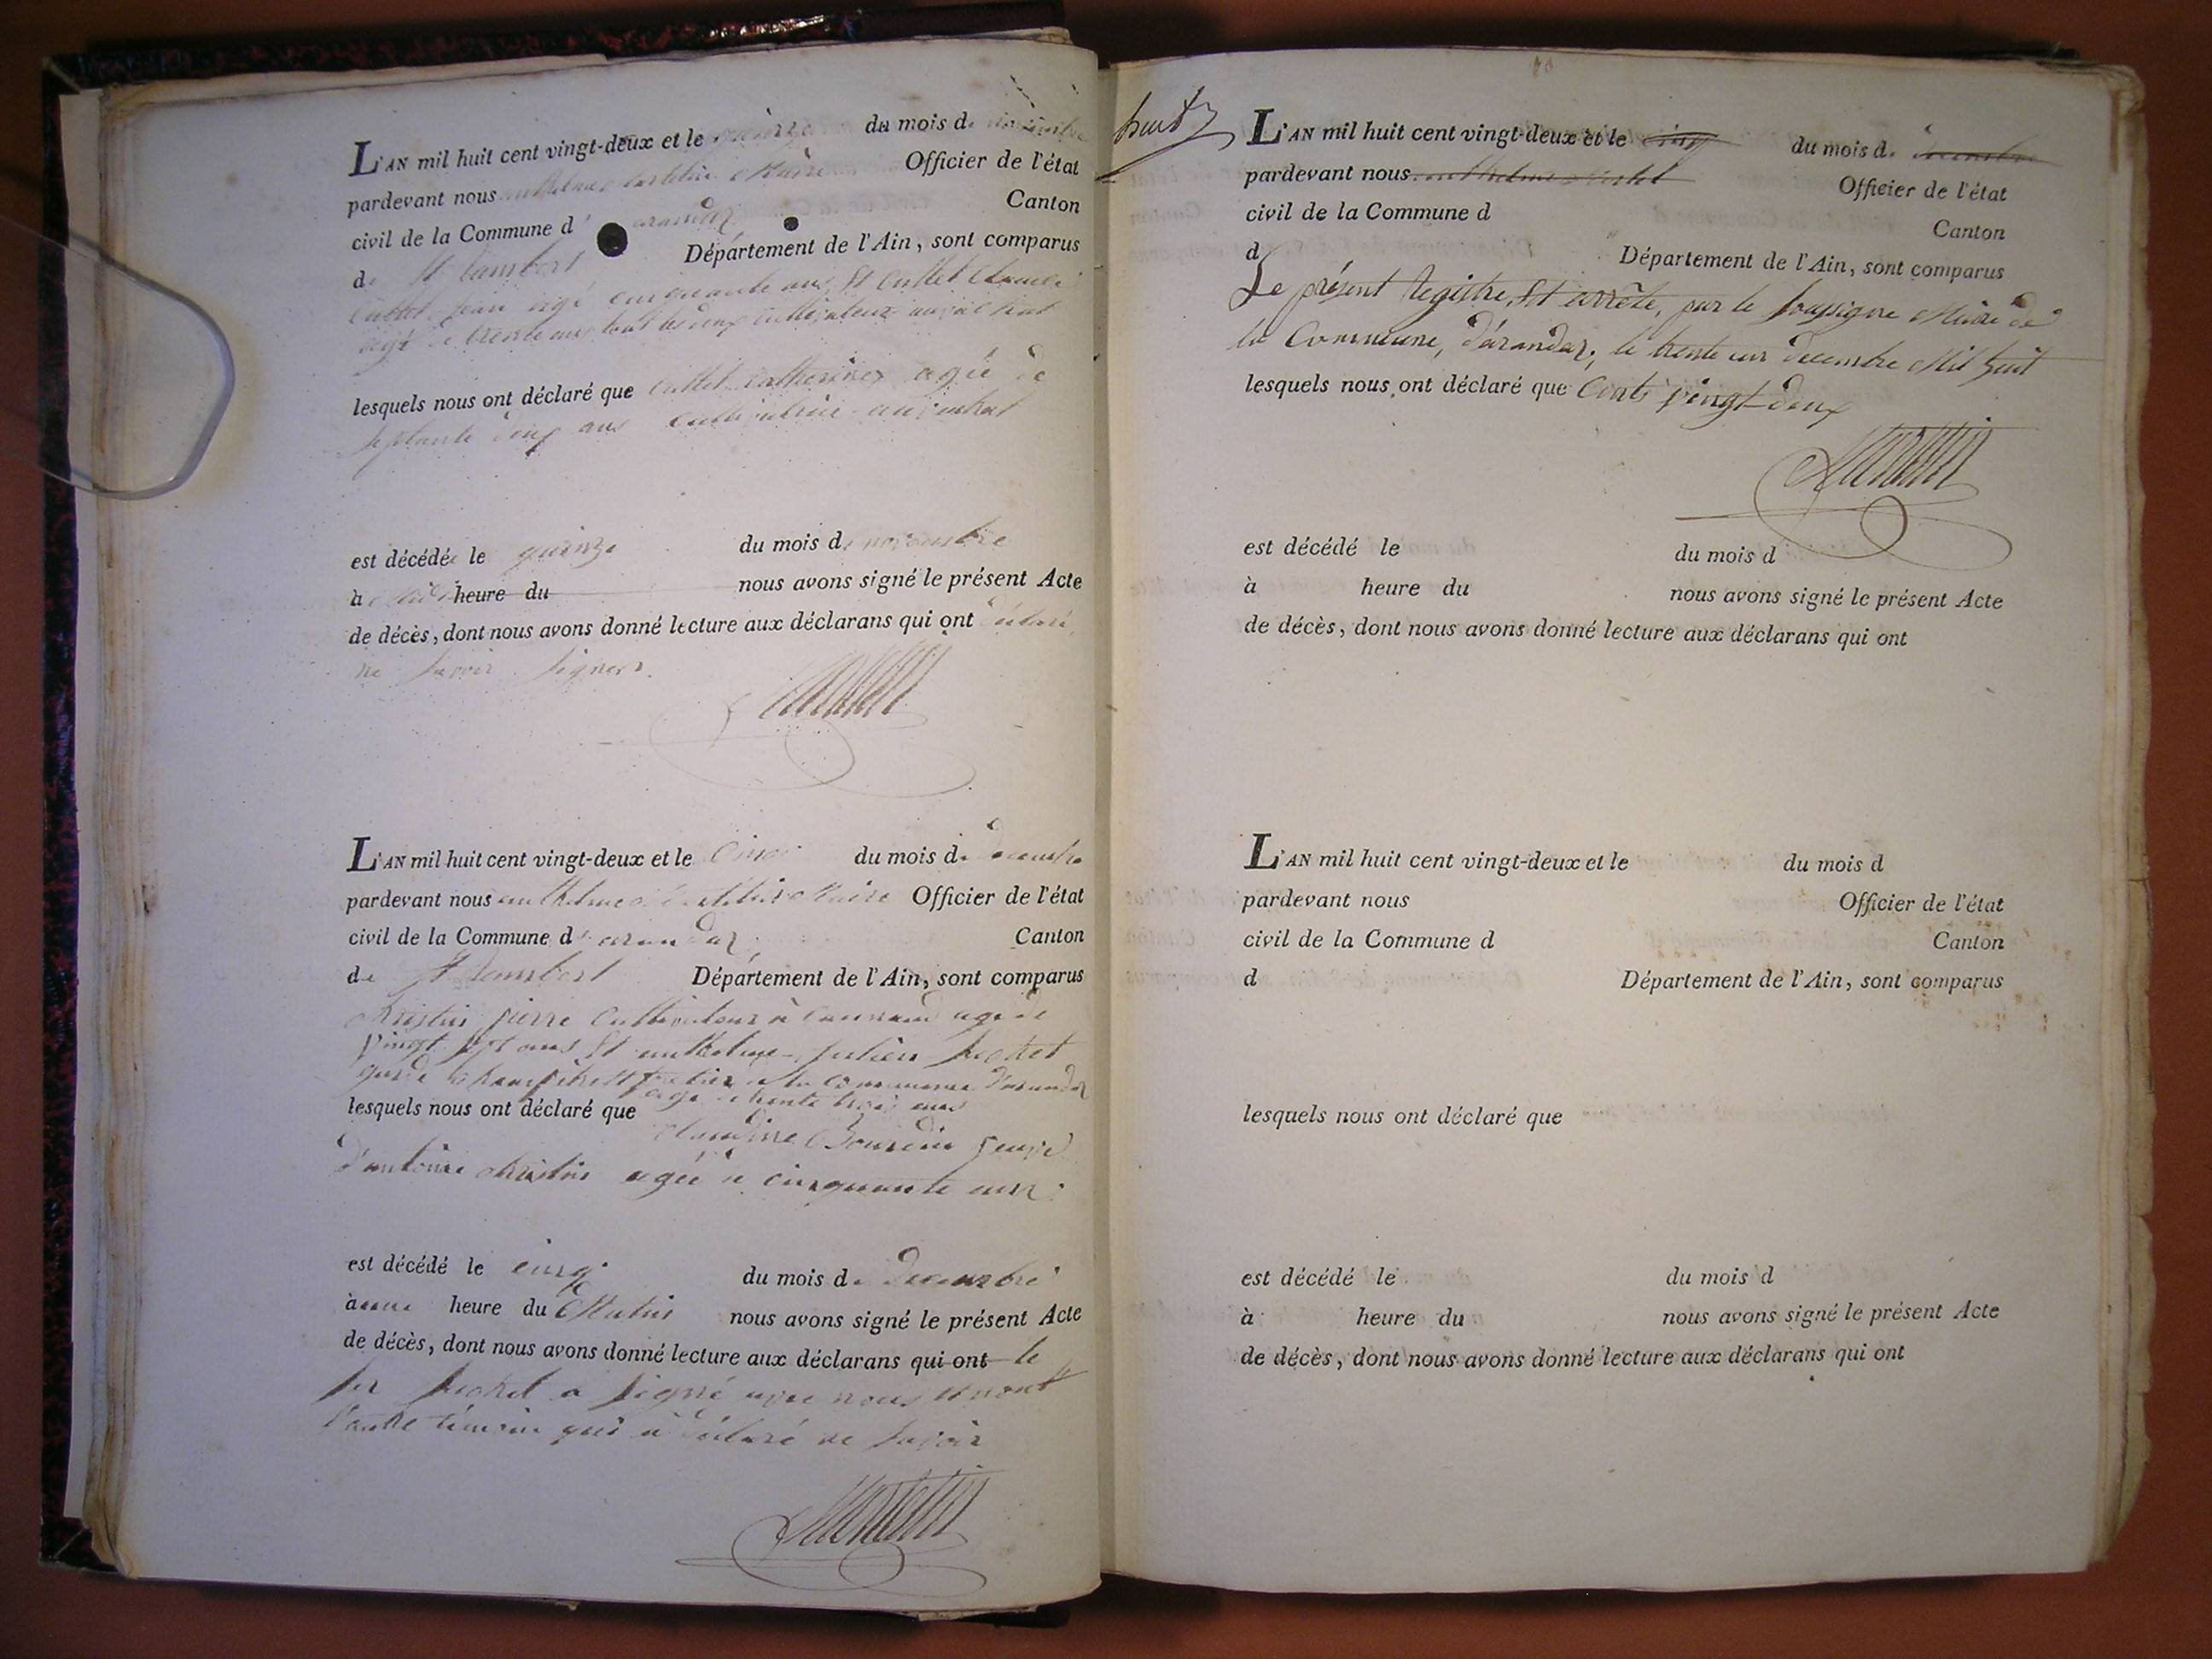 L'AN mil huit cent vingt-deux et le quinze du mois de novembre
pardevant nous anthelme Maire Officier de l'état
civil de la Commune d'arandaz Canton
de St Rambert Département de l'Ain, sont comparus
Cuttet jean agé cinquante ans, Et Cuttet
agé de trente ans tout les deux cultivateur
lesquels nous ont déclaré que Cuttet Catherine agée de
septante deux ans cultivatrice
est décédée le quinze du mois de novembre
à heure du nous avons signé le présent Acte
de décès, dont nous avons donné lecture aux déclarans qui ont déclaré
ne savoir signer.
L'AN mil huit cent vingt-deux et le cinq du mois de decembre
pardevant nous anthelme Maire Officier de l'état
civil de la Commune d'arandaz Canton
de St Rambert Département de l'Ain, sont comparus
christin pierre Cultivateur à agé de
vingt sept ans Et anthelme julien
garde de la commune d'arandaz
agé de trente trois ans
lesquels nous ont déclaré que
claudine Bourdin
d'antoine christin agée de cinquante ans
est décédé le cinq du mois de decembre
à une heure du Matin nous avons signé le présent Acte
de décès, dont nous avons donné lecture aux déclarans qui ont le
sr a signé avec nous et nont
l'autre témoin qui a déclaré ne savoir
L'AN mil huit cent vingt-deux et le cinq du mois de decembre
pardevant nous anthelme Officier de l'état
civil de la Commune d Canton
d Département de l'Ain, sont comparus
Le présent Registre, Est arrêté, par le soussigné Maire de
la Commune, d'arandaz, le trente un decembre Mil huit
lesquels nous ont déclaré que Cents vingt-deux
est décédé le du mois d
à heure du nous avons signé le présent Acte
de décès, dont nous avons donné lecture aux déclarans qui ont
L'AN mil huit cent vingt-deux et le du mois d
pardevant nous Officier de l'état
civil de la Commune d Canton
d Département de l'Ain, sont comparus
lesquels nous ont déclaré que
est décédé le du mois d
à heure du nous avons signé le présent Acte
de décès, dont nous avons donné lecture aux déclarans qui ont